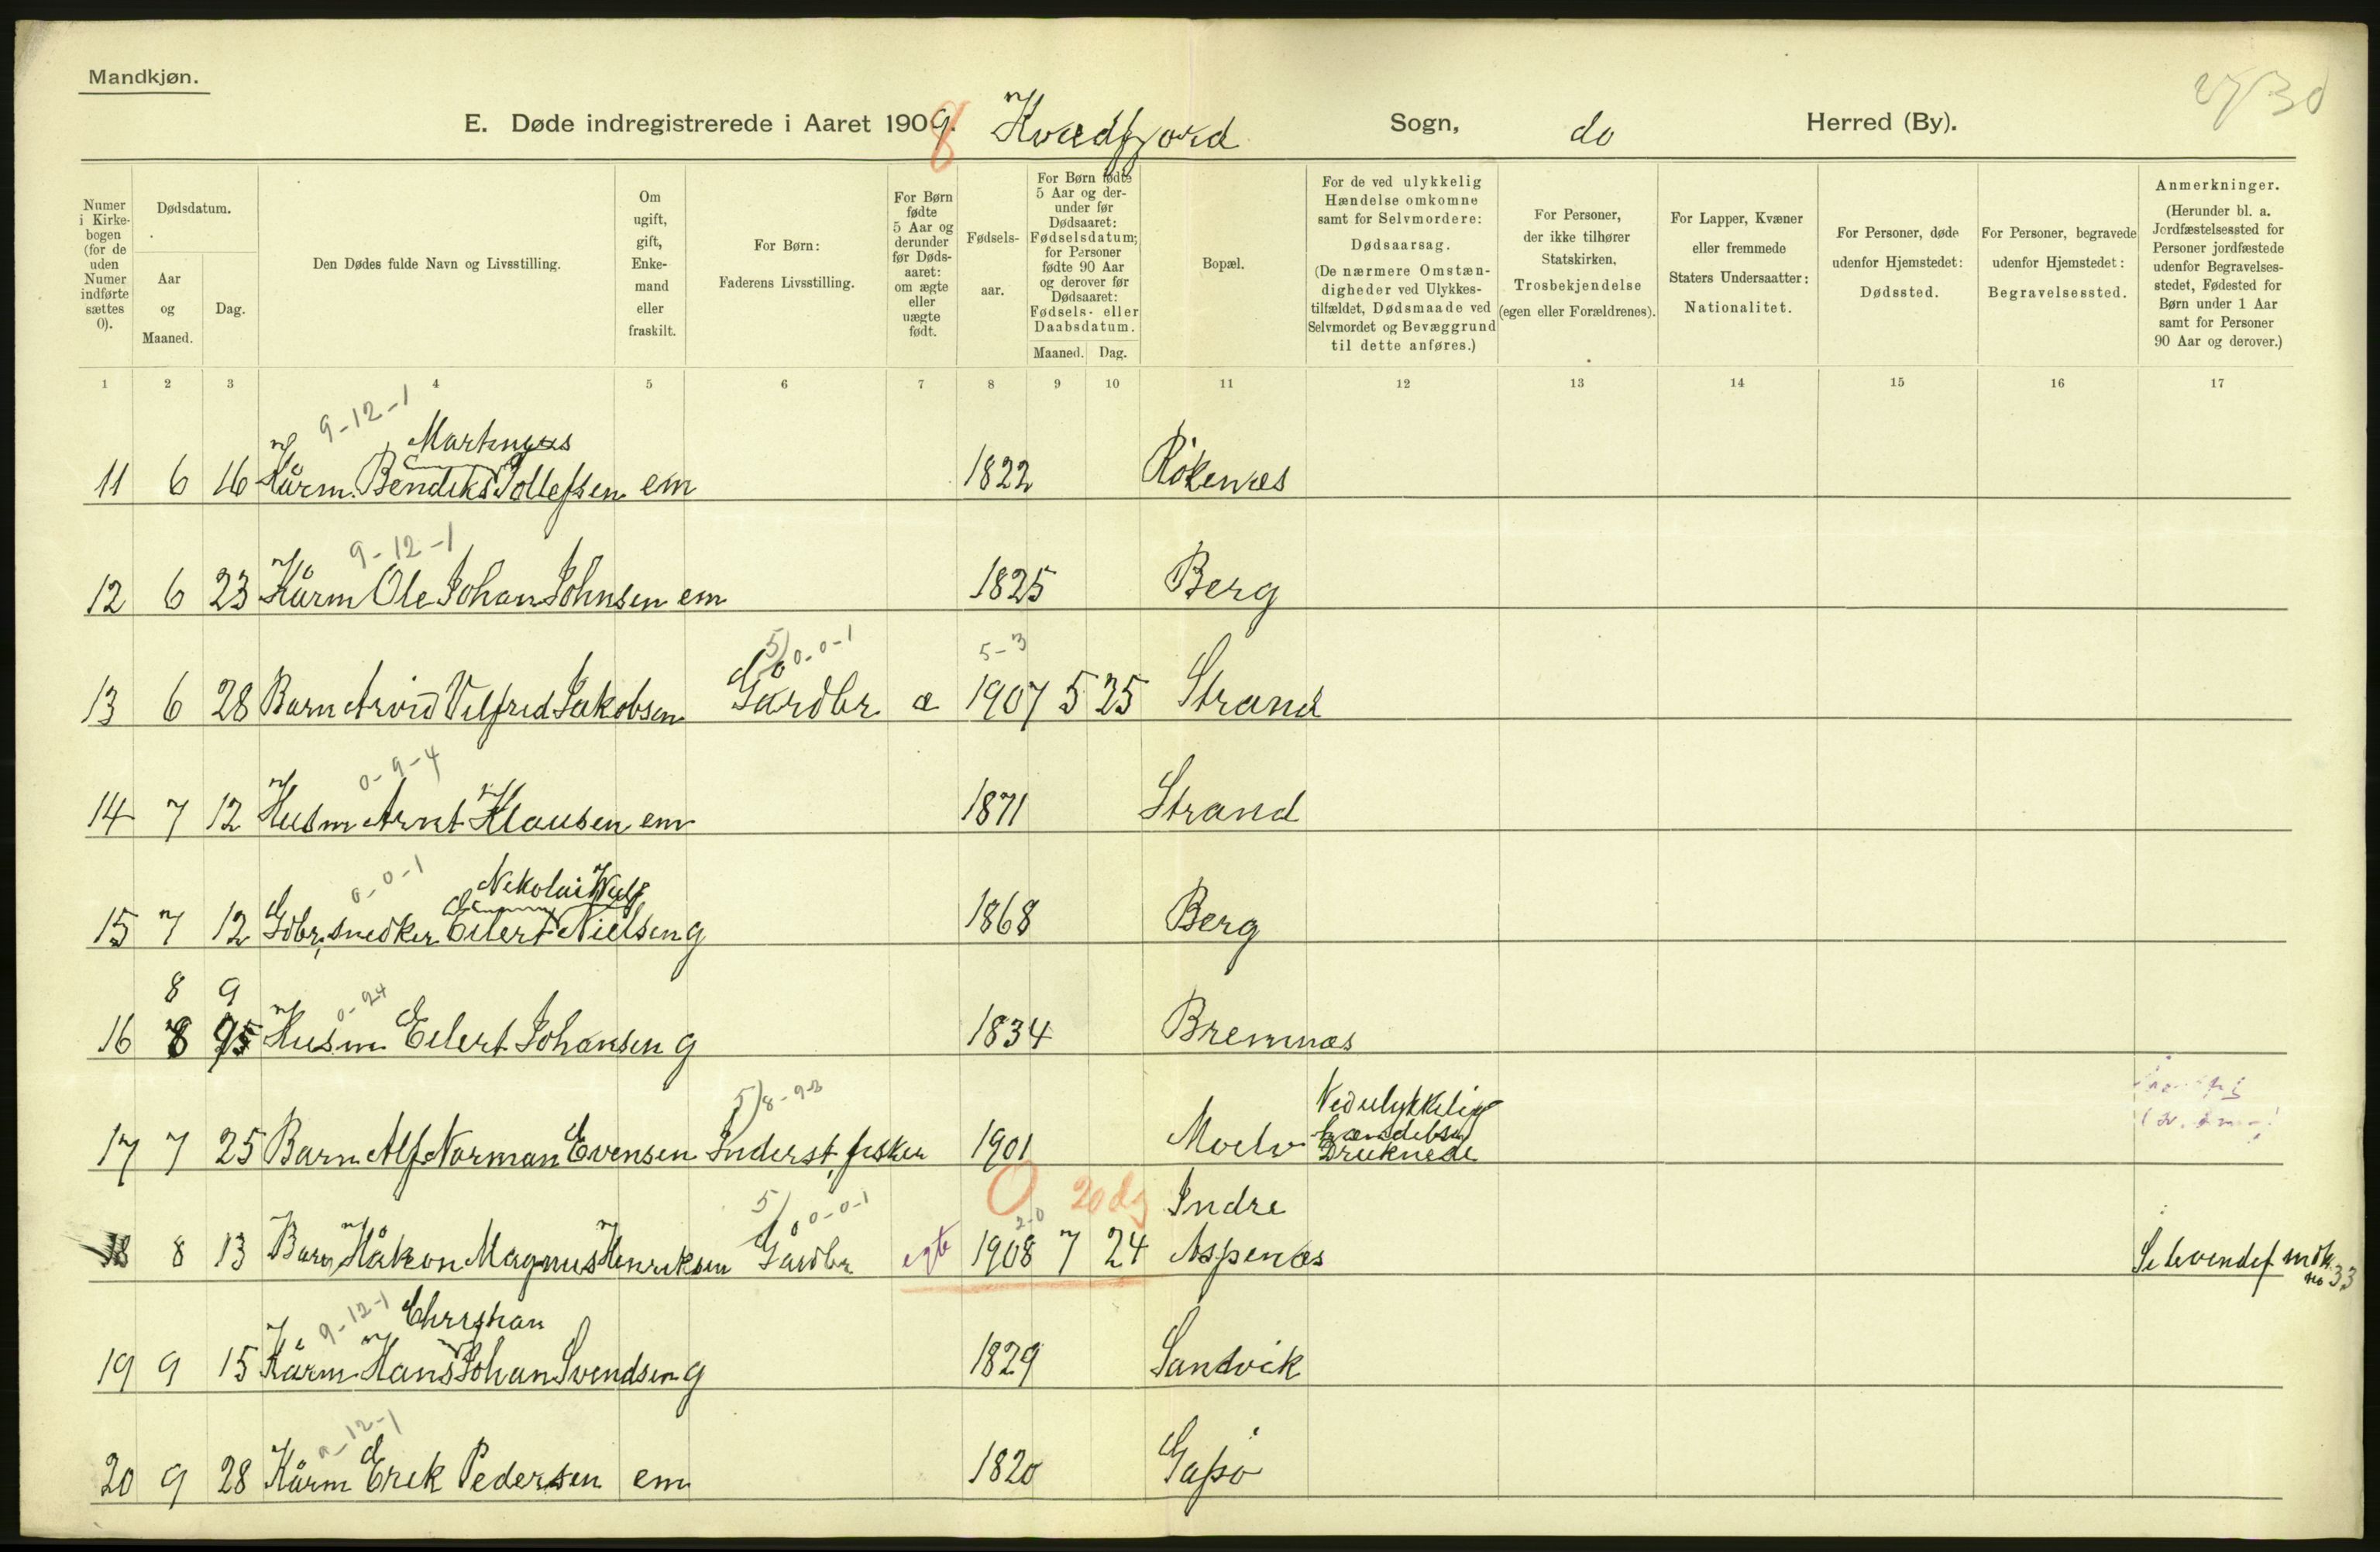 Mandkjøn.
2730
E. Døde indregistrerede i Aaret 1909. 8 Kvædfjord Sogn, do Herred (By).
Numer i Kirkebogen (for de uden Numer indførte sættes 0).
Dødsdatum.
Aar og Maaned.
Dag.
Den Dødes fulde Navn og Livsstilling.
Om ugift, gift, Enkemand eller fraskilt.
For Børn:
Faderens Livsstilling.
For Børn fødte 5 Aar og derunder før Dødsaaret: om ægte eller uægte født.
Fødselsaar.
For Børn fødte 5 Aar og derunder før Dødsaaret: Fødselsdatum; for Personer fødte 90 Aar og derover før Dødsaaret: Fødsels- eller Daabsdatum.
Maaned. Dag.
Bopæl.
For de ved ulykkelig Hændelse omkomne samt for Selvmordere:
Dødsaarsag.
(De nærmere Omstændigheder ved Ulykkestilfældet, Dødsmaade ved Selvmordet og Bevæggrund til dette anføres.)
For Personer, der ikke tilhører Statskirken,
Trosbekjendelse
(egen eller Forældrenes).
For Lapper, Kvæner eller fremmede Staters Undersaatter:
Nationalitet.
For Personer, døde udenfor Hjemstedet:
Dødssted.
For Personer, begravede udenfor Hjemstedet:
Begravelsessted.
Anmerkninger.
(Herunder bl. a. Jordfæstelsessted for Personer jordfæstede udenfor Begravelsesstedet, Fødested for Børn under 1 Aar samt for Personer 90 Aar og derover.)
1 2 3 4 5 6 7 8 9 10 11 12 13 14 15 16 17
9-12-1 Martinus
11 6 16 Kårm. Bendiks Tollefsen em 1822 Rökenæs
9-12-1
12 6 23 Kårm Ole Johan Johnsen em 1825 Berg
5) 0-0-1 5-3
13 6 28 Barn Arvid Vilfred Jakobsen Gårdbr æ 1907 5 25 Strand
0-9-4
14 7 12 Husm Arnt Klausen em 1871 Strand
0-0-1 Nikolai
15 7 12 Gdbr, snedker Eilert Nielsen g 1868 Berg
8 9
0-94
16 8 Husm Eilert Johansen g 1834 Bremnæs
5) 8-93 Ved ulykkelig
hændelse
17 7 25 Barn Alf Norman Evensen Inderst, fisker 1901 Moelv Druknede
5) 0-0-1 0 20 dg Indre
2-0
18 8 13 Barn Håkon Magnus Henriksen Gårdbr egte 1908 7 24 Aspenæs Se levendef mdk.
no 33
9-12-1 Christian
19 9 15 Kårm Hans Johan Svendsen g 1829 Sandvik
9-12-1
20 9 28 Kårm Erik Pedersen em 1820 Gapö